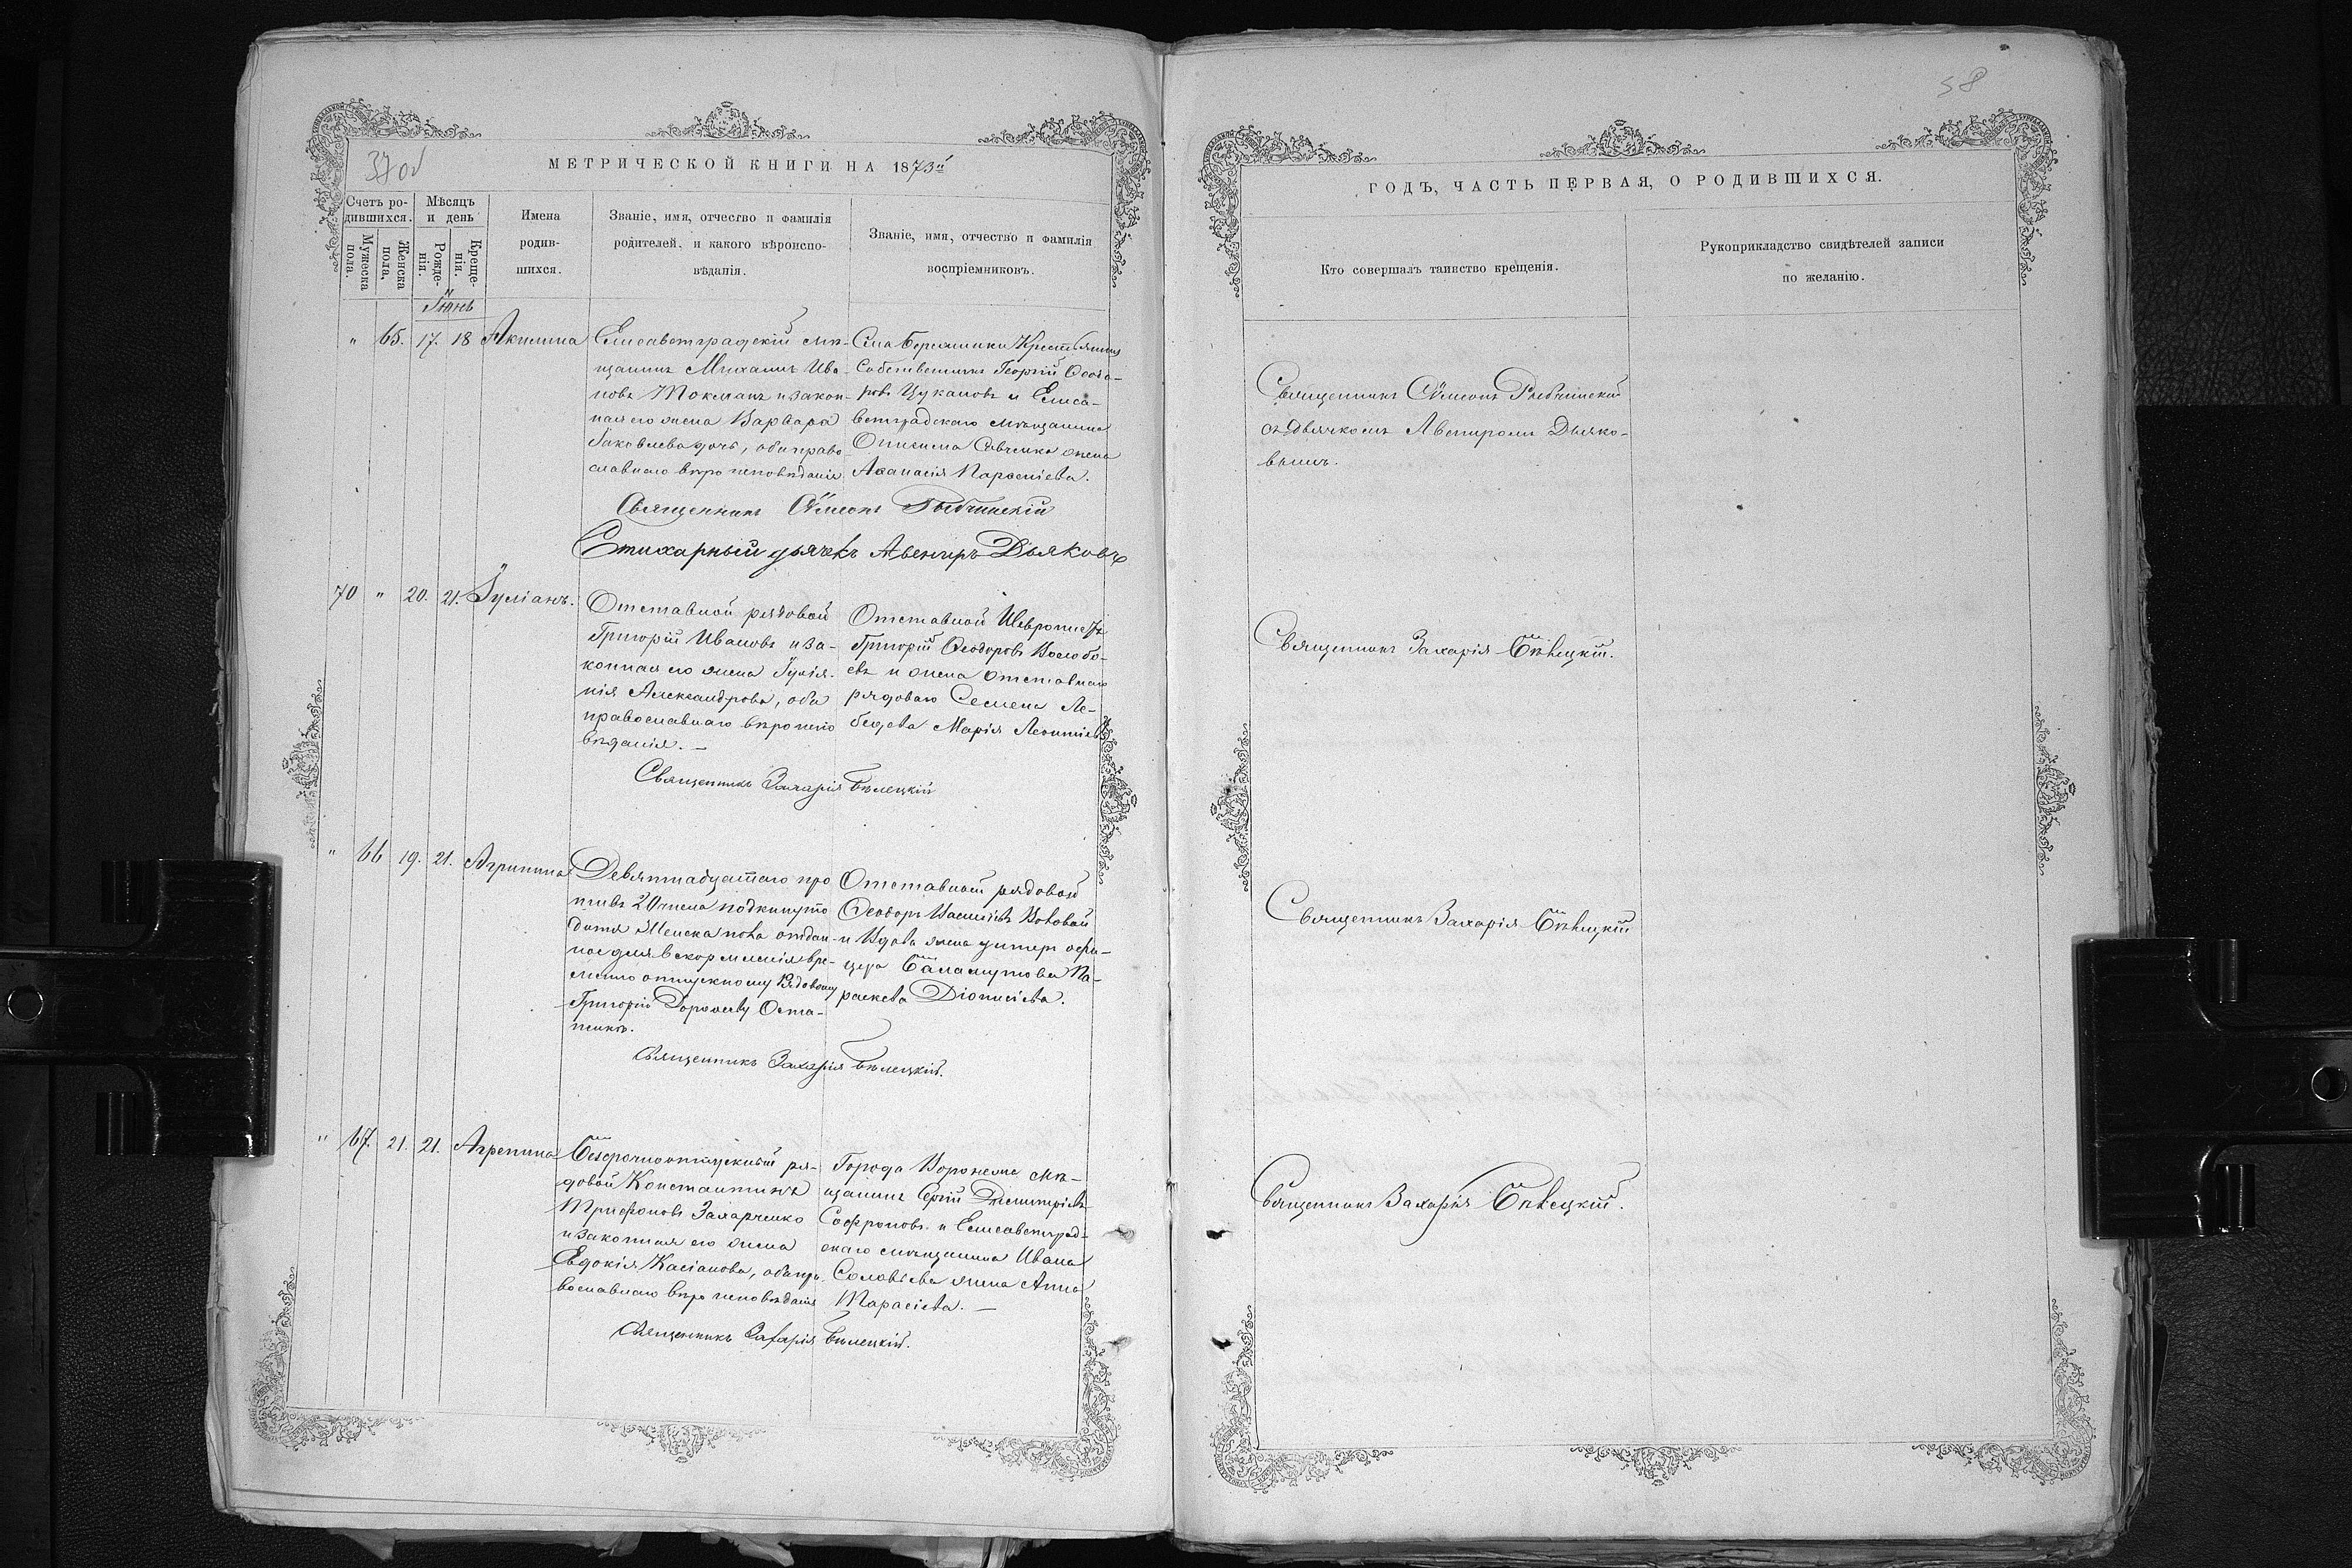 370
МЕТРИЧЕСКОЙ КНИГИ НА 1873й
Счетъ ро-
дившихся.
Мѣсяцъ
и день
Мужеска
пола.
Женска
пола.
Рожде-
нія.
Креще-
нія.
Имена
родив-
шихся.
Званіе, имя, отчество и фамилія
родителей, и какого вѣроиспо-
вѣданія.
Званіе, имя, отчество и фамилія
воспріемниковъ.
Іюнь
" 65. 17. 18 Акилина
Елисаветградскій мѣ-
щанинъ Михаилъ Ива-
новъ Токманъ и закон-
ная его жена Варвара
Іаковлева дочь, оба право
славнаго вѣроисповѣданія
Села Крестьянинъ
Собственникъ Георгій Ѳеодо-
ровъ Цукановъ и Елиса-
ветградскаго мѣщанина
Онисима Савченка жена
Аѳанасія Парѳеніева.
Священникъ Сѷмеонъ
Стихарный дьячекъ Авениръ Дьяковъ
70 " 20. 21. Іуліанъ.
Отставной рядовой
Григорій Ивановъ и за-
конная его жена Іуліа-
нія Александрова, оба
православнаго вѣроиспо
вѣданія. —
Отставной
Григорій Ѳеодоровъ Волобо-
евъ и жена отставнаго
рядоваго Семена Ле-
бедева Марія Леонтіев
Священникъ Захарія Бѣлецкій
" 66 19. 21. Агрипина
Девятнадцатаго про
тивъ 20 числа подкинуто
дитя Женска пола отдан-
ное для вскормленія вре-
менно отпускному Рядовому
Григорію Дороѳееву Оста-
пенкѣ.
Отставной рядовой
Ѳеодоръ Василіевъ
и Вдова жена унтеръ офи-
цера Баламутова Па-
раскева Діонисіева.
Священникъ Захарія Бѣлецкій.
" 67. 21. 21. Агрепина
Безсрочноотпускный ря-
довой Константинъ
Трифоновъ Захарченко
и законная его жена
Евдокія Касіанова, оба пра
вославнаго вѣроисповѣданія
Города Воронежа мѣ-
щанинъ Сергій Димитріевъ
Софроновъ и Елисаветград-
скаго мѣщанина Ивана
Соловьева жена Анна
Тарасіева. —
Священникъ Захарія Бѣлецкій.
58
ГОДЪ, ЧАСТЬ ПЕРВАЯ, О РОДИВШИХСЯ.
Кто совершалъ таинство крещенія.
Рукоприкладство свидѣтелей записи
по желанію.
Священникъ Сѷмеонъ
съ дьячкомъ Авениромъ Дьяко-
вымъ.
Священникъ Захарія Бѣлецкій.
Священникъ Захарія Бѣлецкій
Священникъ Захарія Бѣлецкій.